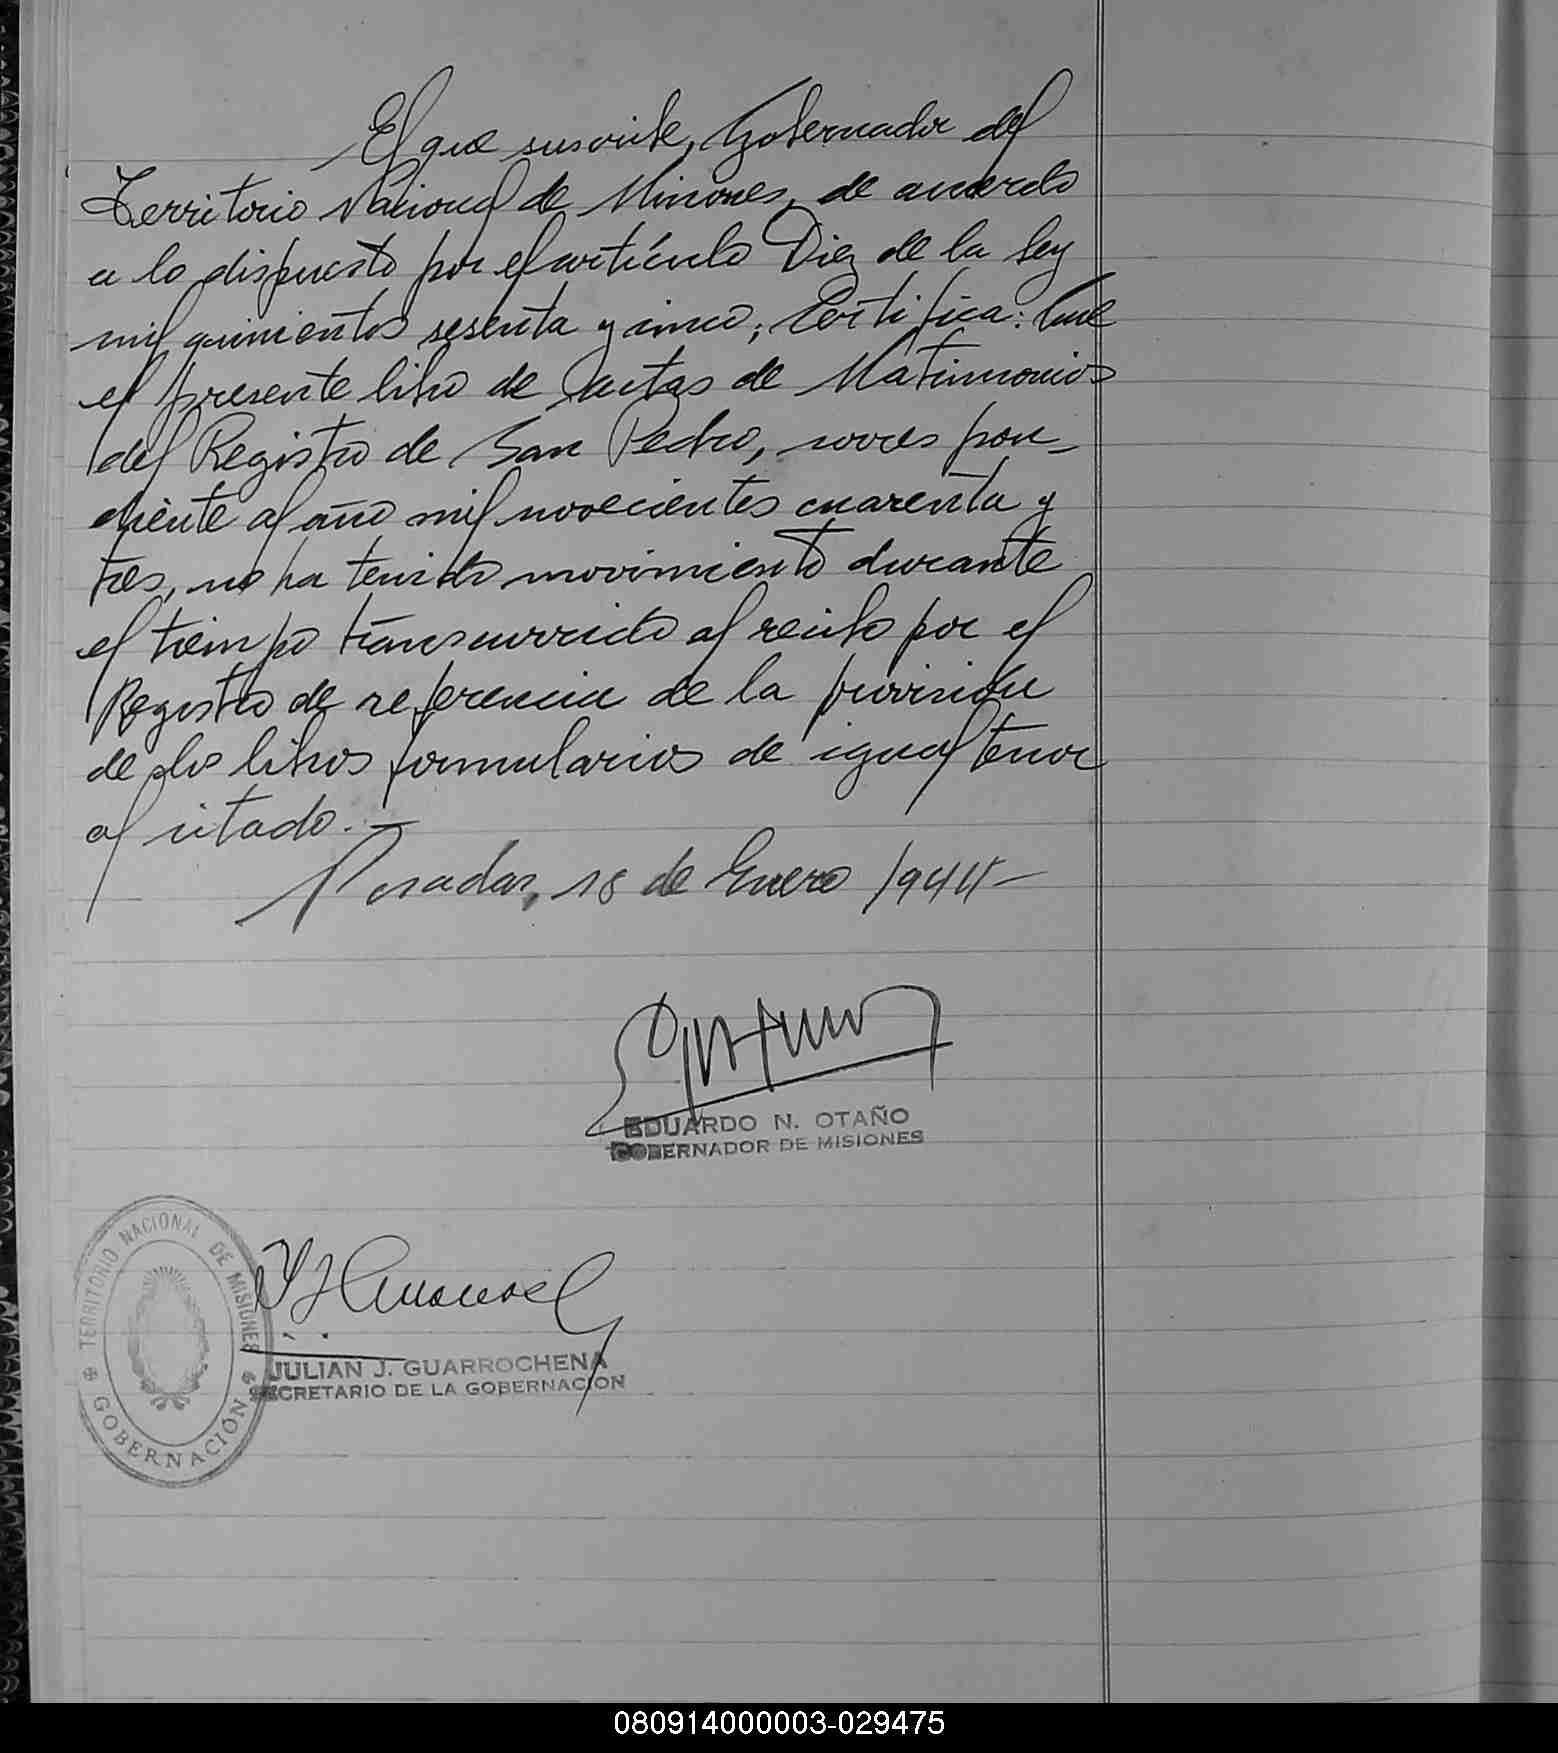 El que suscribe, Gobernador del
Territorio Nacional de Misiones, de acuerdo
a lo dispuesto por el artículo Diez de la ley
mil quinientos sesenta y cinco, Certifica: Que
el presente libro de actas de Matrimonios
del Registro de San Pedro, corres pon-
diente al año mil novecientos cuarenta y
tres, no ha tenido movimiento durante
el tiempo transcurrido al recibo por el
Registro de referencia de la provisión
de los libros formularios de igual tenor
al citado.-
Posadas, 18 de Enero 1944-
EDUARDO N. OTAÑO
GOBERNADOR DE MISIONES
TERRITORIO NACIONAL DE MISIONES
GOBERNACIÓN
JULIAN J. GUARROCHENA
SECRETARIO DE LA GOBERNACION
080914000003-029475